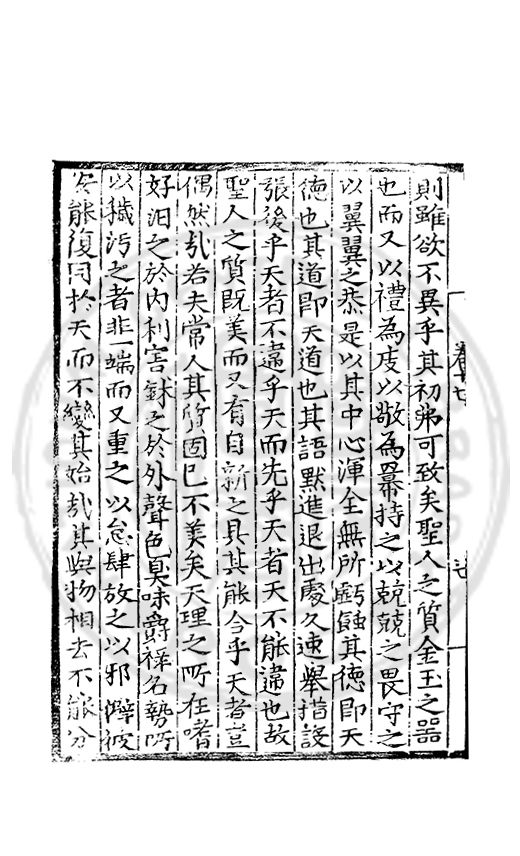 則雖欲不異乎其初弗可致矣聖人之質金玉之器
也而又以禮為度以敬為冪持之以兢兢之畏守之
以翼翼之恭是以其中心渾全無所虧蝕其德即天
德也其道即天道也其語默進退出處久速舉措設
張後乎天者不違乎天而先乎天者天不能違也故
聖人之質既美而又有自新之具其能合乎天者豈
偶然哉若夫常人其質固已不美矣天理之所在嗜
好汩之於內利害鉥之於外聲色臭味爵祿名勢所
以穢污之者非一端而又重之以怠肆放之以邪僻彼
安能復同於天而不變其始哉其與物相去不能分